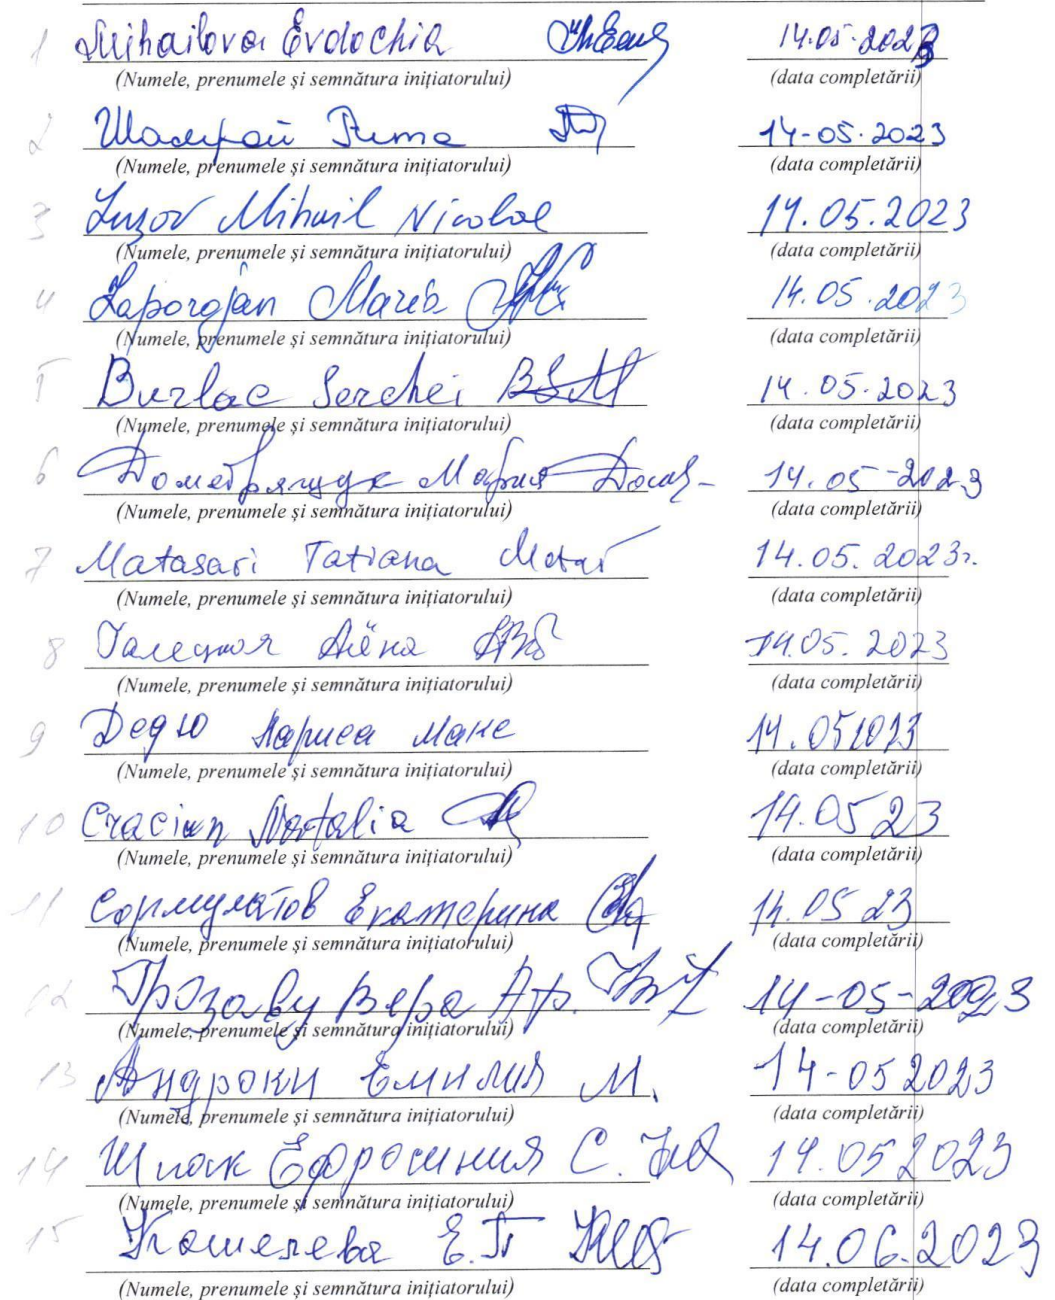 1 Mihailova Evdochia 14.05.2023
(Numele, prenumele și semnătura inițiatorului) (data completării)
2 14-05.2023
(Numele, prenumele și semnătura inițiatorului) (data completării)
3 Luzov Mihail Nicolae 14.05.2023
(Numele, prenumele și semnătura inițiatorului) (data completării)
4 Zaporojan Maria 14.05.2023
(Numele, prenumele și semnătura inițiatorului) (data completării)
5 Burlac Serchei BSM 14.05.2023
(Numele, prenumele și semnătura inițiatorului) (data completării)
6 Мария 14.05-2023
(Numele, prenumele și semnătura inițiatorului) (data completării)
7 Matasari Tatiana 14.05.2023г.
(Numele, prenumele și semnătura inițiatorului) (data completării)
8 Алёна 14.05.2023
(Numele, prenumele și semnătura inițiatorului) (data completării)
9 Дедю Лариса Макс 14.052023
(Numele, prenumele și semnătura inițiatorului) (data completării)
10 Craciun Natalia 14.05 23
(Numele, prenumele și semnătura inițiatorului) (data completării)
11 Сормулатов Екатерина 14.05 23
(Numele, prenumele și semnătura inițiatorului) (data completării)
12 Грозаву Вера Аф. 14-05-2023
(Numele, prenumele și semnătura inițiatorului) (data completării)
13 Андроки Емилия М. 14-05 2023
(Numele, prenumele și semnătura inițiatorului) (data completării)
14 Шпак Ефросиния С. 14.05 2023
(Numele, prenumele și semnătura inițiatorului) (data completării)
15 Кошелева Е.П 14.06.2023
(Numele, prenumele și semnătura inițiatorului) (data completării)